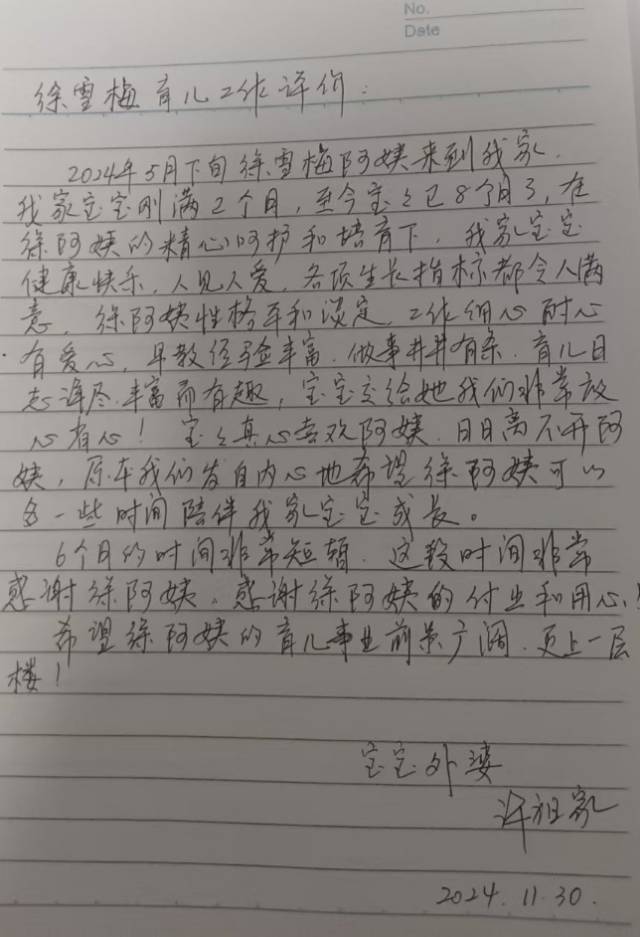 No.
Date
徐雪梅育儿工作评价:
2024年5月下旬徐雪梅阿姨来到我家.
我家宝宝刚满2个月,至今宝々已8个月了,在
徐阿姨的精心呵护和培育下,我家宝宝
健康快乐,人见人爱,各项生长指标都令人满
意,徐阿姨性格平和淡定,工作细心耐心
有爱心,早教经验丰富.做事井井有条.育儿日
志详尽.丰富而有趣,宝宝交给她我们非常放
心省心!宝々真心喜欢阿姨.日日离不开阿
姨,原本我们发自内心地希望徐阿姨可以
多一些时间陪伴我家宝宝成长。
6个月的时间非常短暂.这段时间非常
感谢徐阿姨.感谢徐阿姨的付出和用心!
希望徐阿姨的育儿事业前景广阔.更上一层
楼!
宝宝外婆
许祖家
2024.11.30.